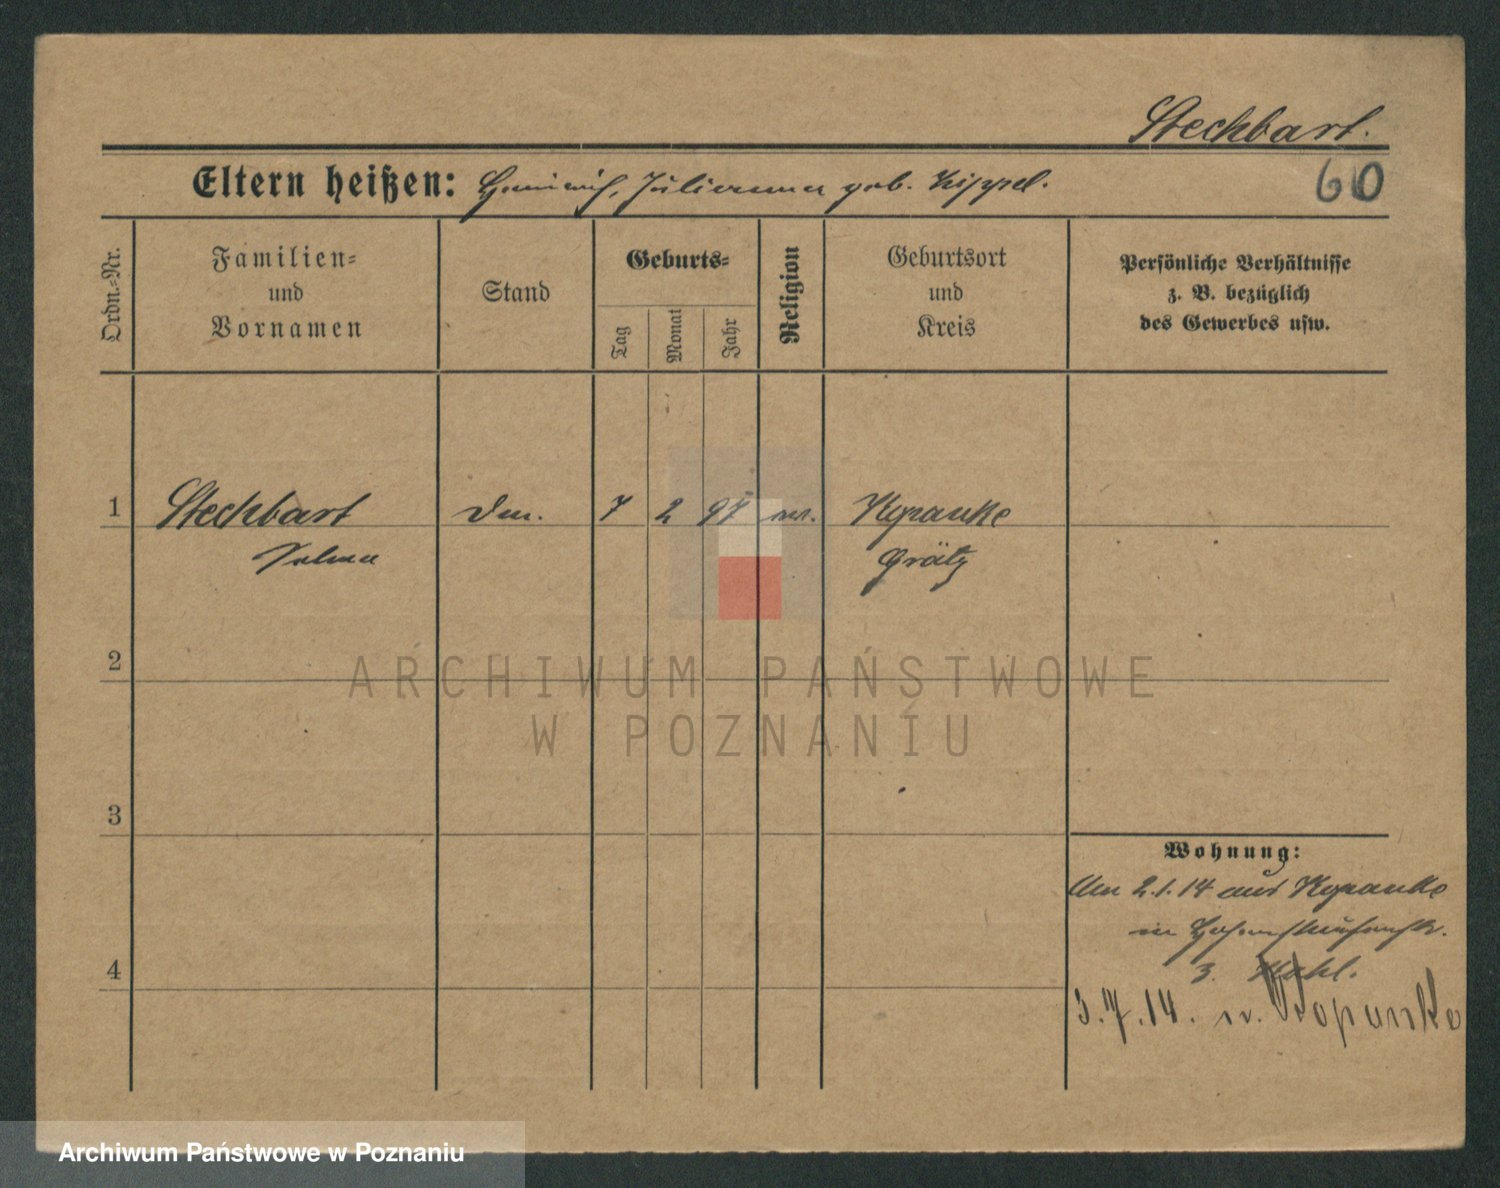 Stechbart.
Eltern heißen: Heinrich, Julianna geb. Kippel.
60
Ordn.-Nr.
Familien-
und
Vornamen
Stand
Geburts-
Tag
Monat
Jahr
Religion
Geburtsort
und
Kreis
Persönliche Verhältnisse
z. B. bezüglich
des Gewerbes usw.
1 Stechbart 7 2 97
Selma
Grätz
2
ARCHIWUM PAŃSTWOWE
W POZNANIU
3
Wohnung:
2.1.14 aus Kopanke
in Hohenstaufenstr.
4
3.
3.7.14. n. Kopanke
Archiwum Państwowe w Poznaniu